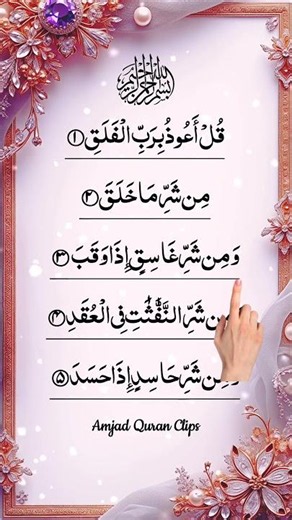 بسم الله الرحمن الرحيم
قُلْ أَعُوذُ بِرَبِّ الْفَلَقِ ۝۱
مِن شَرِّ مَا خَلَقَ ۝۲
وَمِن شَرِّ غَاسِقٍ إِذَا وَقَبَ ۝۳
مِن شَرِّ النَّفّٰثٰتِ فِى الْعُقَدِ ۝۴
وَمِن شَرِّ حَاسِدٍ إِذَا حَسَدَ ۝۵
Amjad Quran Clips